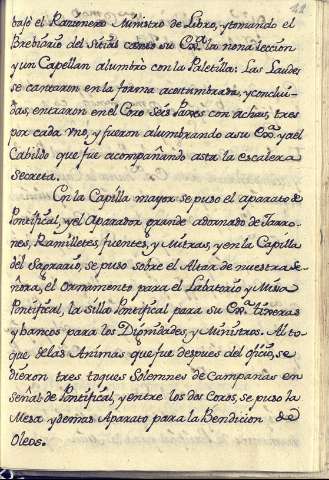 baxó el Razonero Ministro de Libro, y tomando el
Breviario del sitial cantó su Exª. la nona leccion
y un Capellan alumbró con la Paletilla: Las Laudes
se cantaron en la forma acostumbrada, y conclui-
das, entraron en el Coro Seis Paxes con achas, tres
por cada , y fueron alumbrando a su Exª. y al
Cabildo que fue acompañando asta la escalera
Secreta.
En la Capilla mayor se puso el aparato de
Pontifical, y el Aparador grande adornado de Jarro-
nes, Ramilletes, fuentes, y Mitras, y en la Capilla
del Sagrario, se puso sobre el Altar de nuestra Se-
ñora, el Ornamento para el Labatorio y Misa
Pontifical, la silla Pontifical para su Exª. 
y bancos para los Dignidades, y Ministros. Al to-
que de las Animas que fue despues del oficio, se
dieron tres toques Solemnes de Campanas en
señal de Pontifical, y entre los dos Coros, se puso la
Mesa y demas Aparato para la Bendicion de
Oleos.